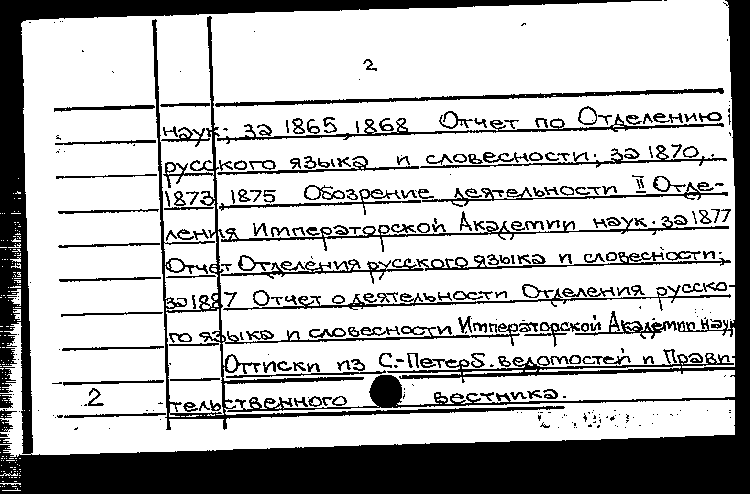 2
наук; за 1865, 1868 Отчет по Отделению
русского языка и словесности; за 1870,
1873, 1875 Обозрение деятельности II Отде-
ления Императорской Академии наук; за 1877
Отчет Отделения русского языка и словесности;
за 1887 Отчет о деятельности Отделения русско-
го языка и словесности Императорской Академии наук
Оттиски из С.-Петерб. ведомостей и Прави-
2 тельственного вестника.